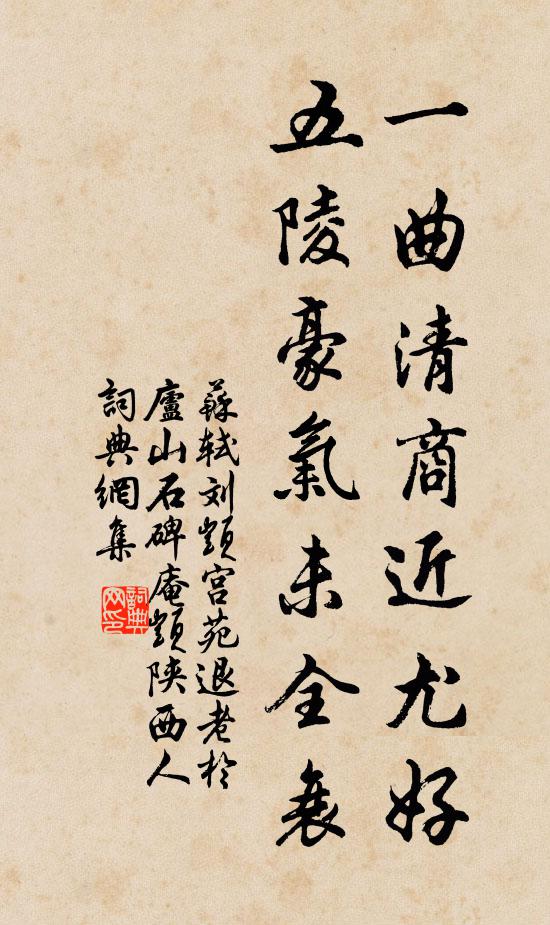 一曲清商近尤好
五陵豪氣未全衰
蘇軾刘顗宮苑退老於
廬山石碑庵顗陝西人
詞典網集
詞典网印